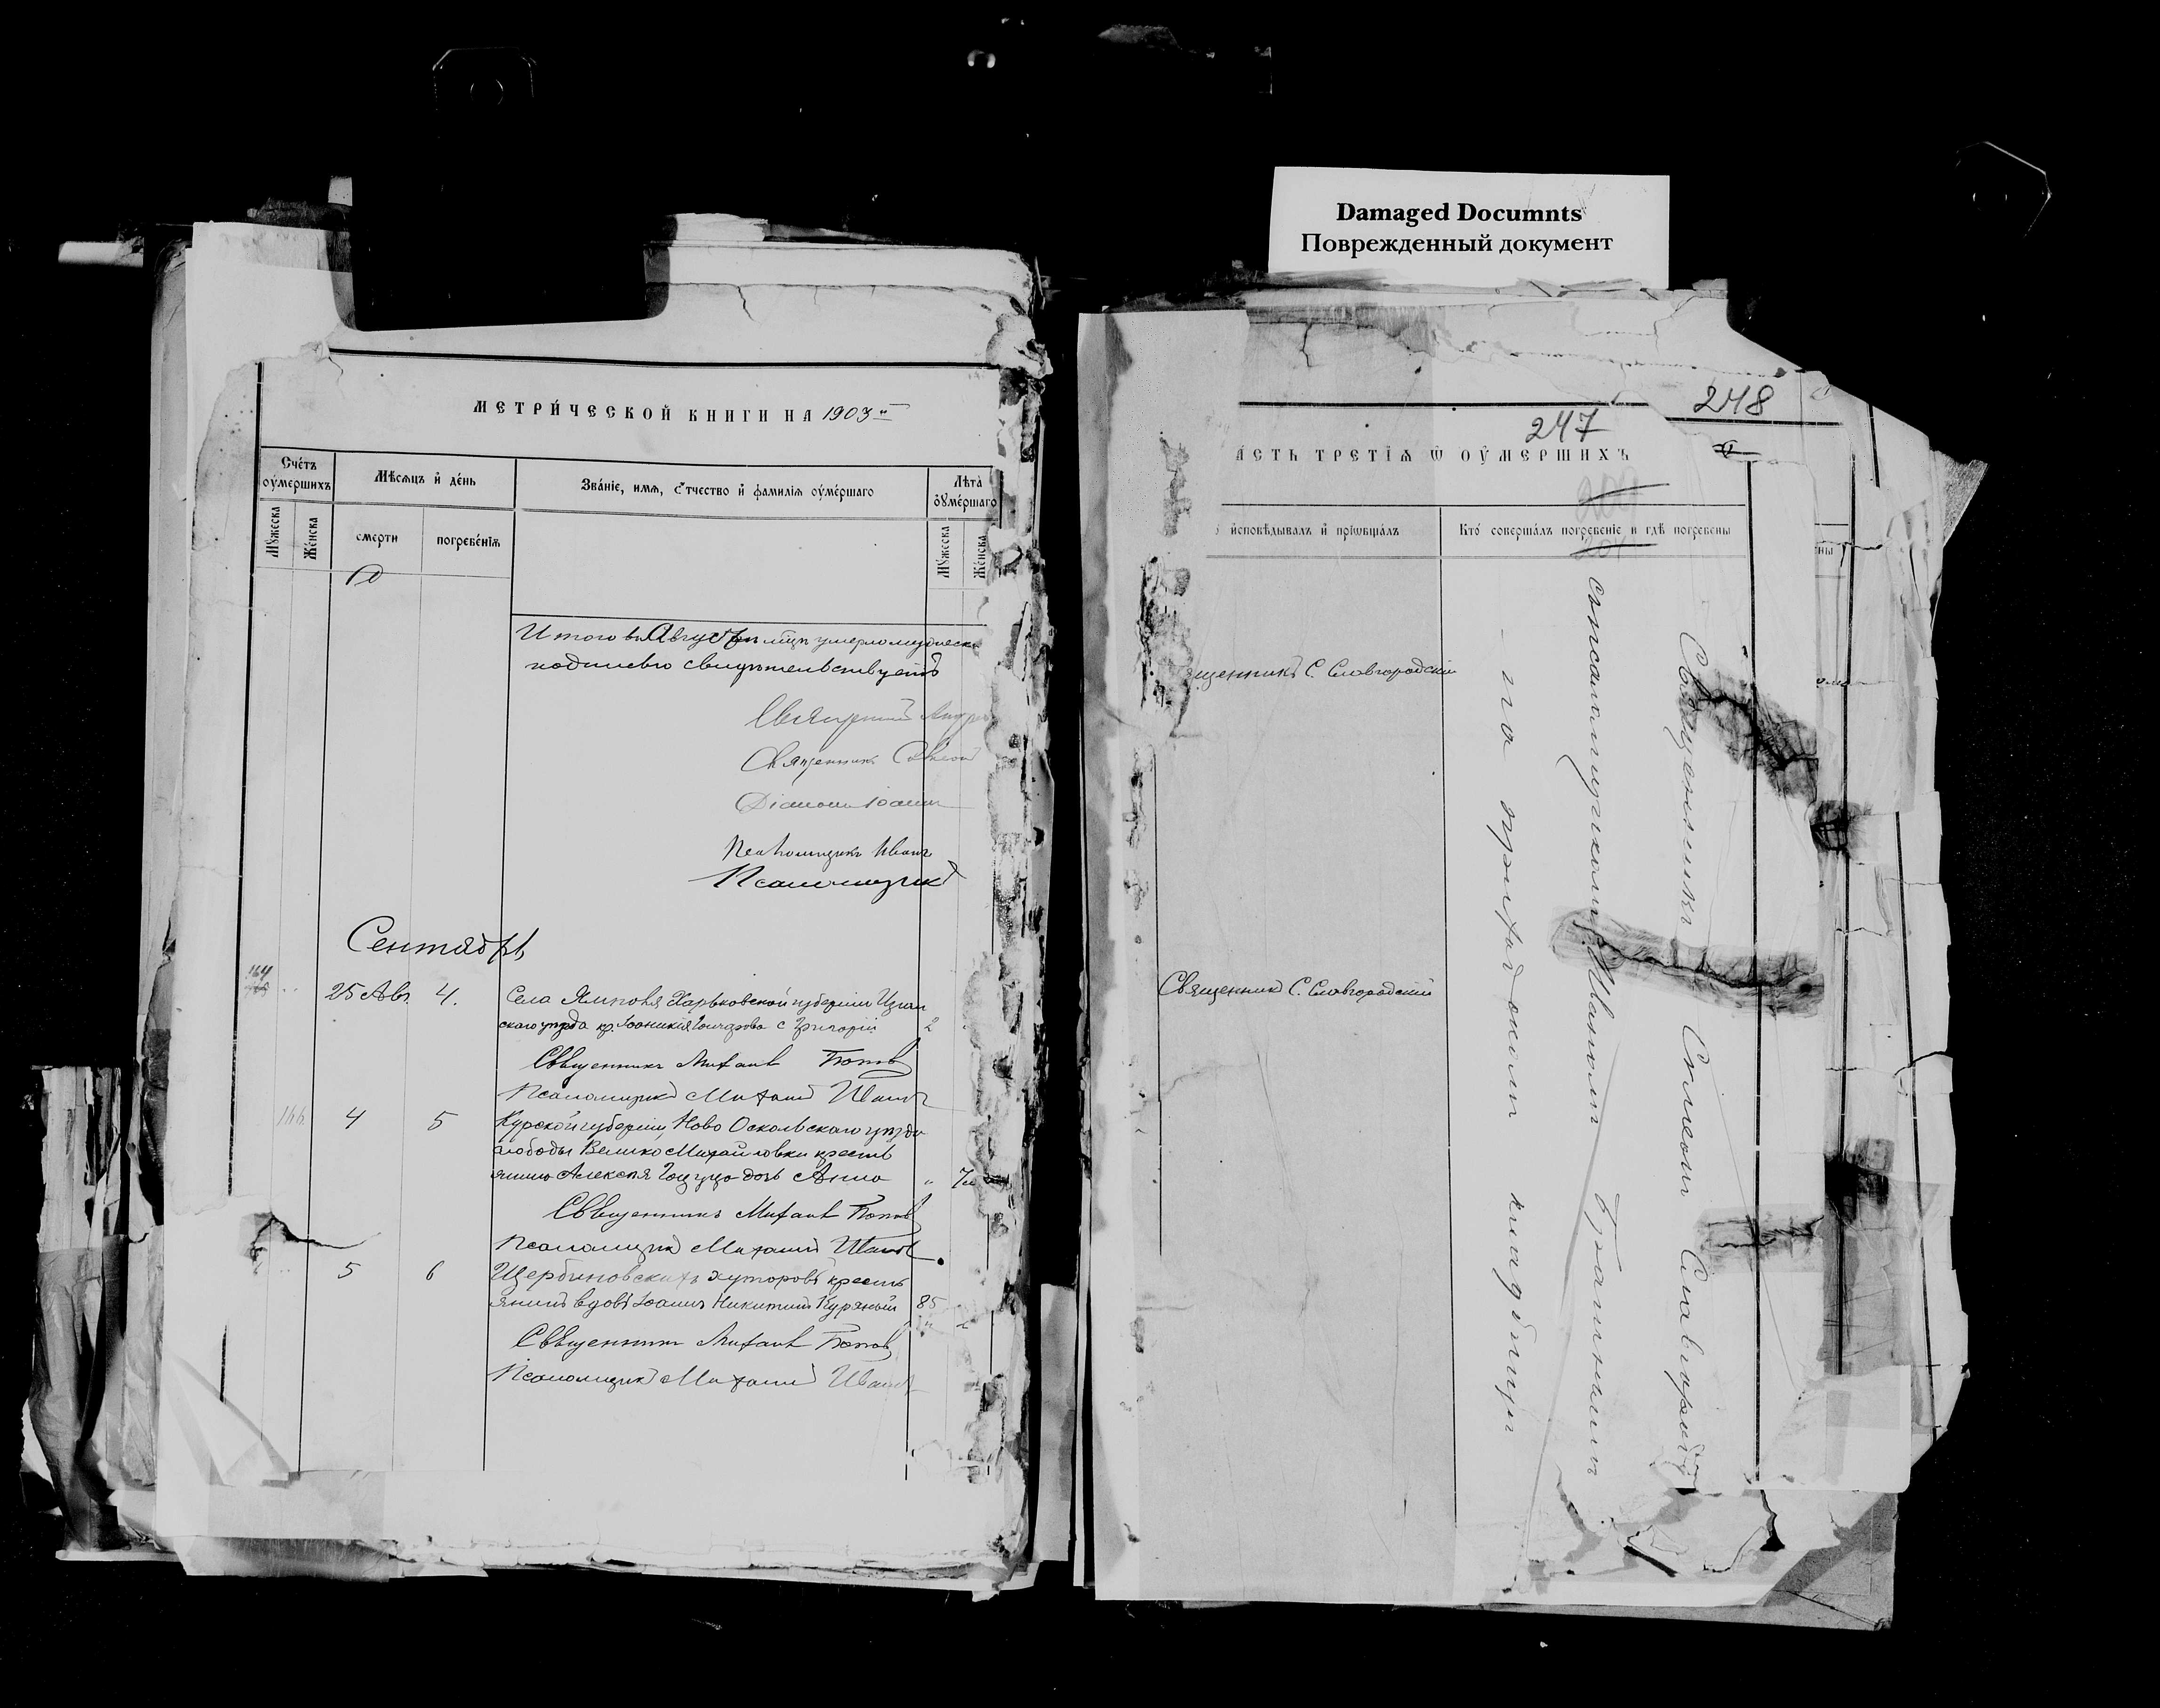 Damaged Documnts
Поврежденный документ
МЕТРИ́ЧЕСКОЙ КНИГИ НА 1903
Сче́тъ оу́мершихъ
Мѣ́сяцъ и҆ де́нь
Зва́нїе, имя, ѻ҆́тчество и҆ фамилїя оу҆ме́ршаго
Лѣта̀ оу҆ме́ршаго
Мꙋ́жеска
Же́нска
смерти
погребе́нїя
Мꙋ́жеска
Же́нска
Итого въ Августѣ м͠цѣ умерло мужеска
подписью свидѣтельствуетъ
Священникъ
Діаконъ Іоаннъ
Псаломщикъ Иванъ
Псаломщикъ
Сентябрь
164
25 Авг. 4.
Села Ямполя, Харьковской губерніи Изюм
скаго уѣзда кр. Іоаникія Гончарова с Григорій 2
Священникъ Михаилъ Поповъ
Псаломщикъ Михаилъ Иванов
166
4 5
Курской губерніи, Ново Оскольскаго уѣзда
слободы Велико Михайловки кресть
янина Алексѣя дочь Анна
Священникъ Михаилъ Поповъ
Псаломщикъ Михаилъ Иванов
5 6
Щербиновскихъ хуторовъ кресть
янинъ вдовъ Іоаннъ Никитинъ Куряный 85
Священникъ Михаилъ Поповъ
Псаломщикъ Михаилъ Иванов
248
247
А́СТЬ ТРЕ́ТЇЯ Ѡ҆ ОУ҆МЕ́РШИХЪ
и҆сповѣ́дывалъ и҆ прїѡбща́лъ
Кто̀ соверша́лъ погребе́нїе и гдѣ̀ погребены
ященникъ С. Славгородскій
Священникъ С. Славгородскій
Священникъ Симеонъ Славгородскій
съ псаломщикомъ Иваномъ
на приходскомъ кладбищѣ